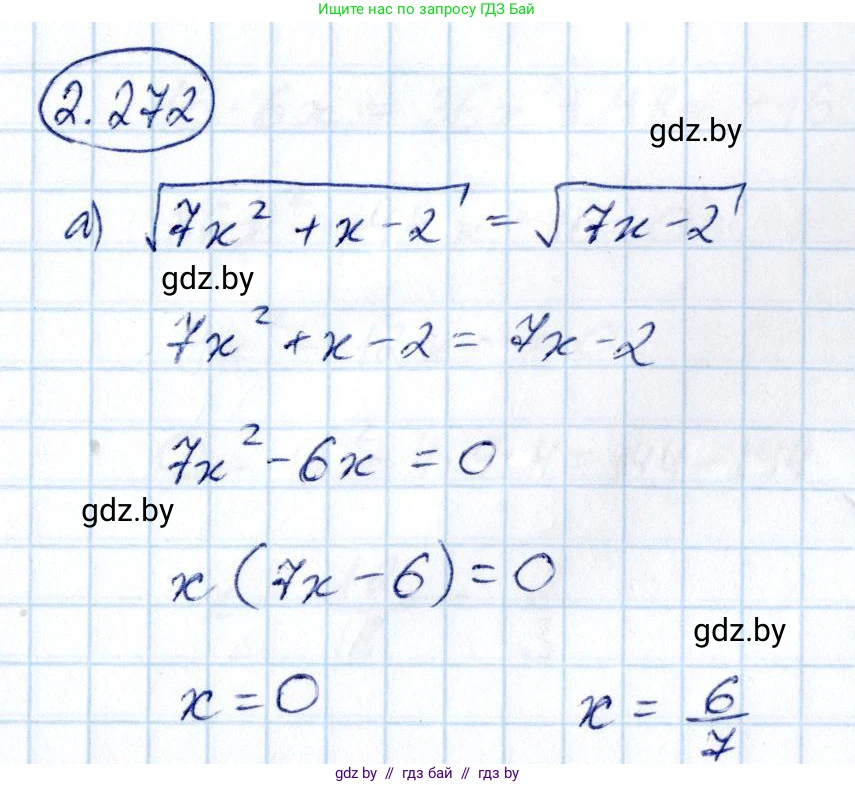 Ищите нас по запросу ГДЗ Бай
2.272
gdz.by
а) √(7x² + x - 2) = √(7x - 2)
gdz.by
7x² + x - 2 = 7x - 2
7x² - 6x = 0
gdz.by
x (7x - 6) = 0
gdz.by
x = 0 x = 6/7
gdz by // гдз бай // гдз by